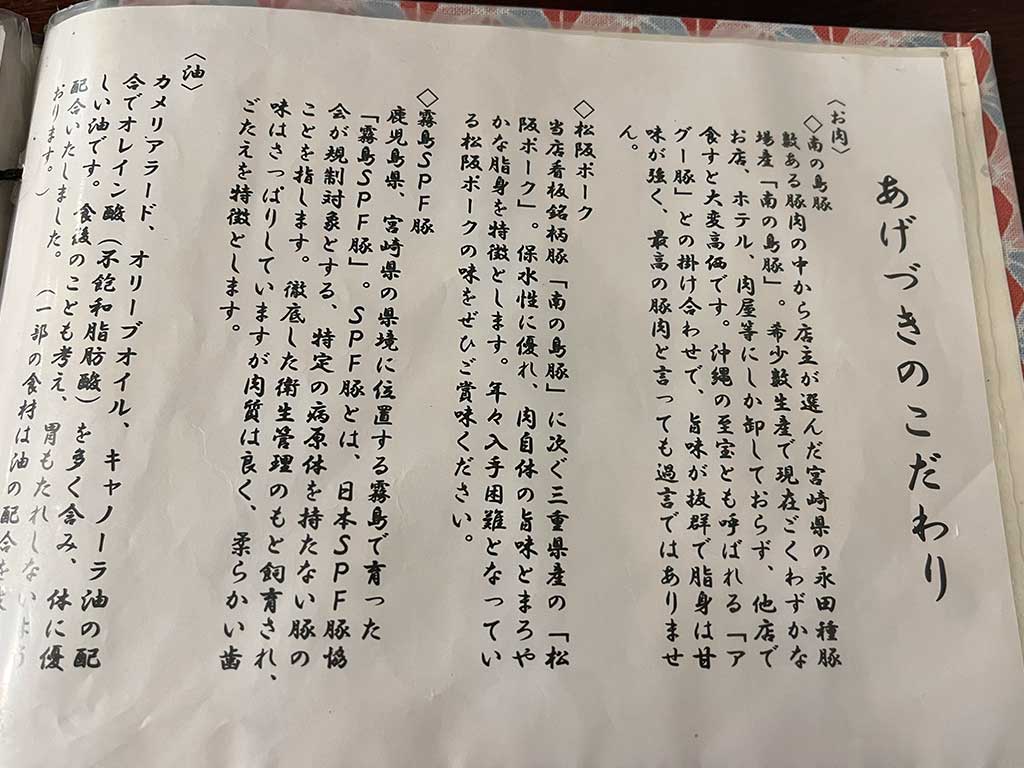 あげづきのこだわり
〈お肉〉
◇南の島豚
数ある豚肉の中から店主が選んだ宮崎県の永田種豚
場産「南の島豚」。希少数生産で現在ごくわずかな
お店、ホテル、肉屋等にしか卸しておらず、他店で
食すと大変高価です。沖縄の至宝とも呼ばれる「ア
グー豚」との掛け合わせで、旨味が抜群で脂身は甘
味が強く、最高の豚肉と言っても過言ではありませ
ん。
◇松阪ポーク
当店看板銘柄豚「南の島豚」に次ぐ三重県産の「松
阪ポーク」。保水性に優れ、肉自体の旨味とまろや
かな脂身を特徴とします。年々入手困難となってい
る松阪ポークの味をぜひご賞味ください。
◇霧島SPF豚
鹿児島県、宮崎県の県境に位置する霧島で育った
「霧島SPF豚」。SPF豚とは、日本SPF豚協
会が規制対象とする、特定の病原体を持たない豚の
ことを指します。徹底した衛生管理のもと飼育され、
味はさっぱりしていますが肉質は良く、柔らかい歯
ごたえを特徴とします。
〈油〉
カメリアラード、オリーブオイル、キャノーラ油の配
合でオレイン酸（不飽和脂肪酸）を多く含み、体に優
しい油です。食後のことも考え、胃もたれしないよう
配合いたしました。（一部の食材は油の配合を
おります。）